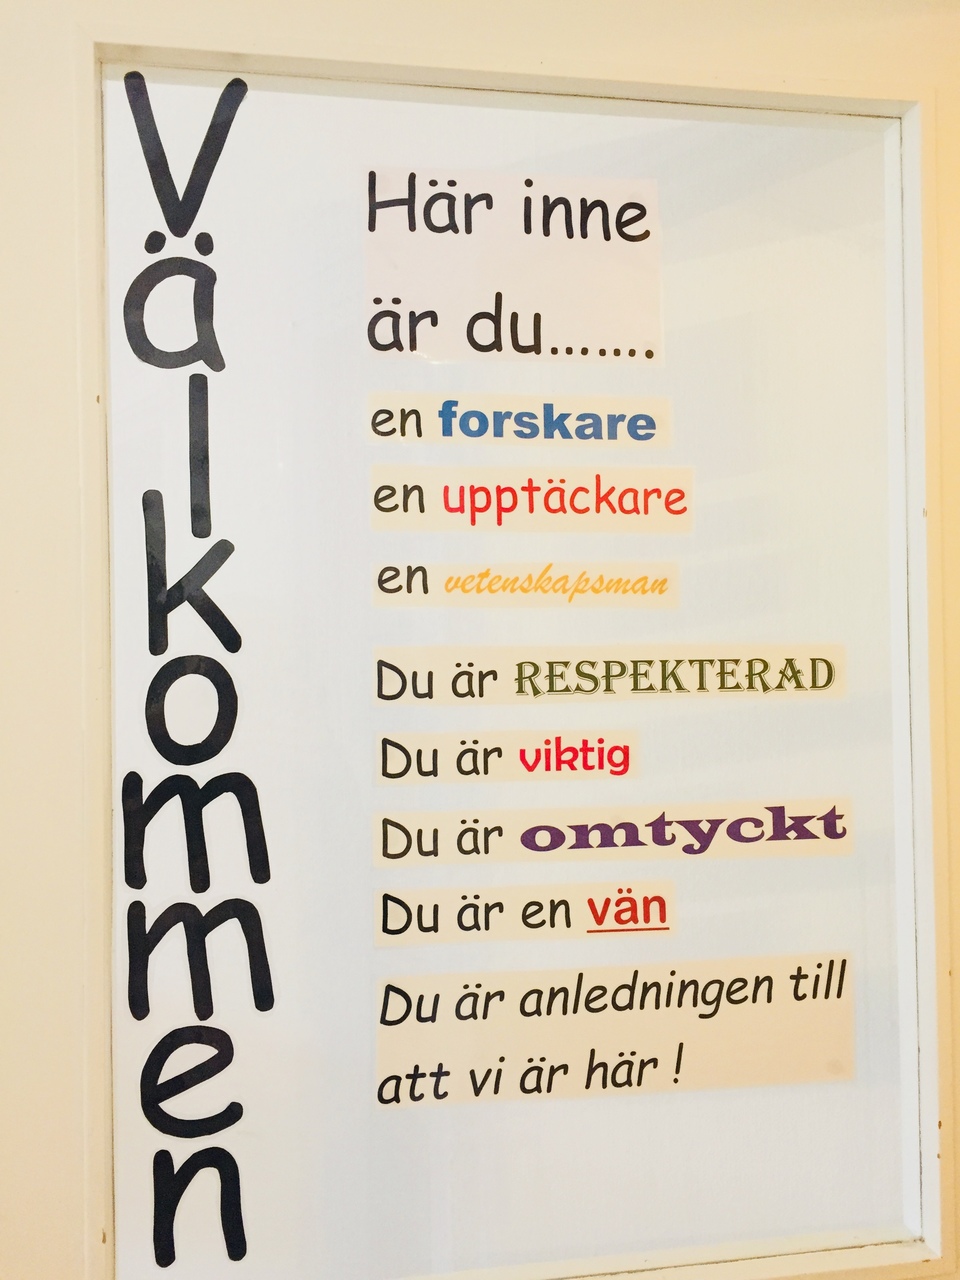 Välkommen
Här inne
är du.......
en forskare
en upptäckare
en vetenskapsman
Du är RESPEKTERAD
Du är viktig
Du är omtyckt
Du är en vän
Du är anledningen till
att vi är här !